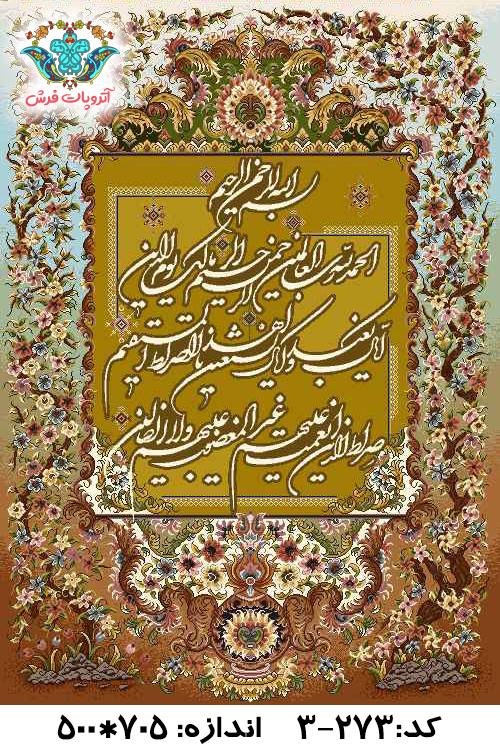 آتروپات فرش
بسم الله الرحمن الرحیم
الحمد لله رب العالمین الرحمن الرحیم مالک یوم الدین
ایاک نعبد و ایاک نستعین اهدنا الصراط المستقیم
صراط الذین انعمت علیهم غیر المغضوب علیهم ولا الضالین
کد:۲۷۳-۳ اندازه: ۷۰۵*۵۰۰